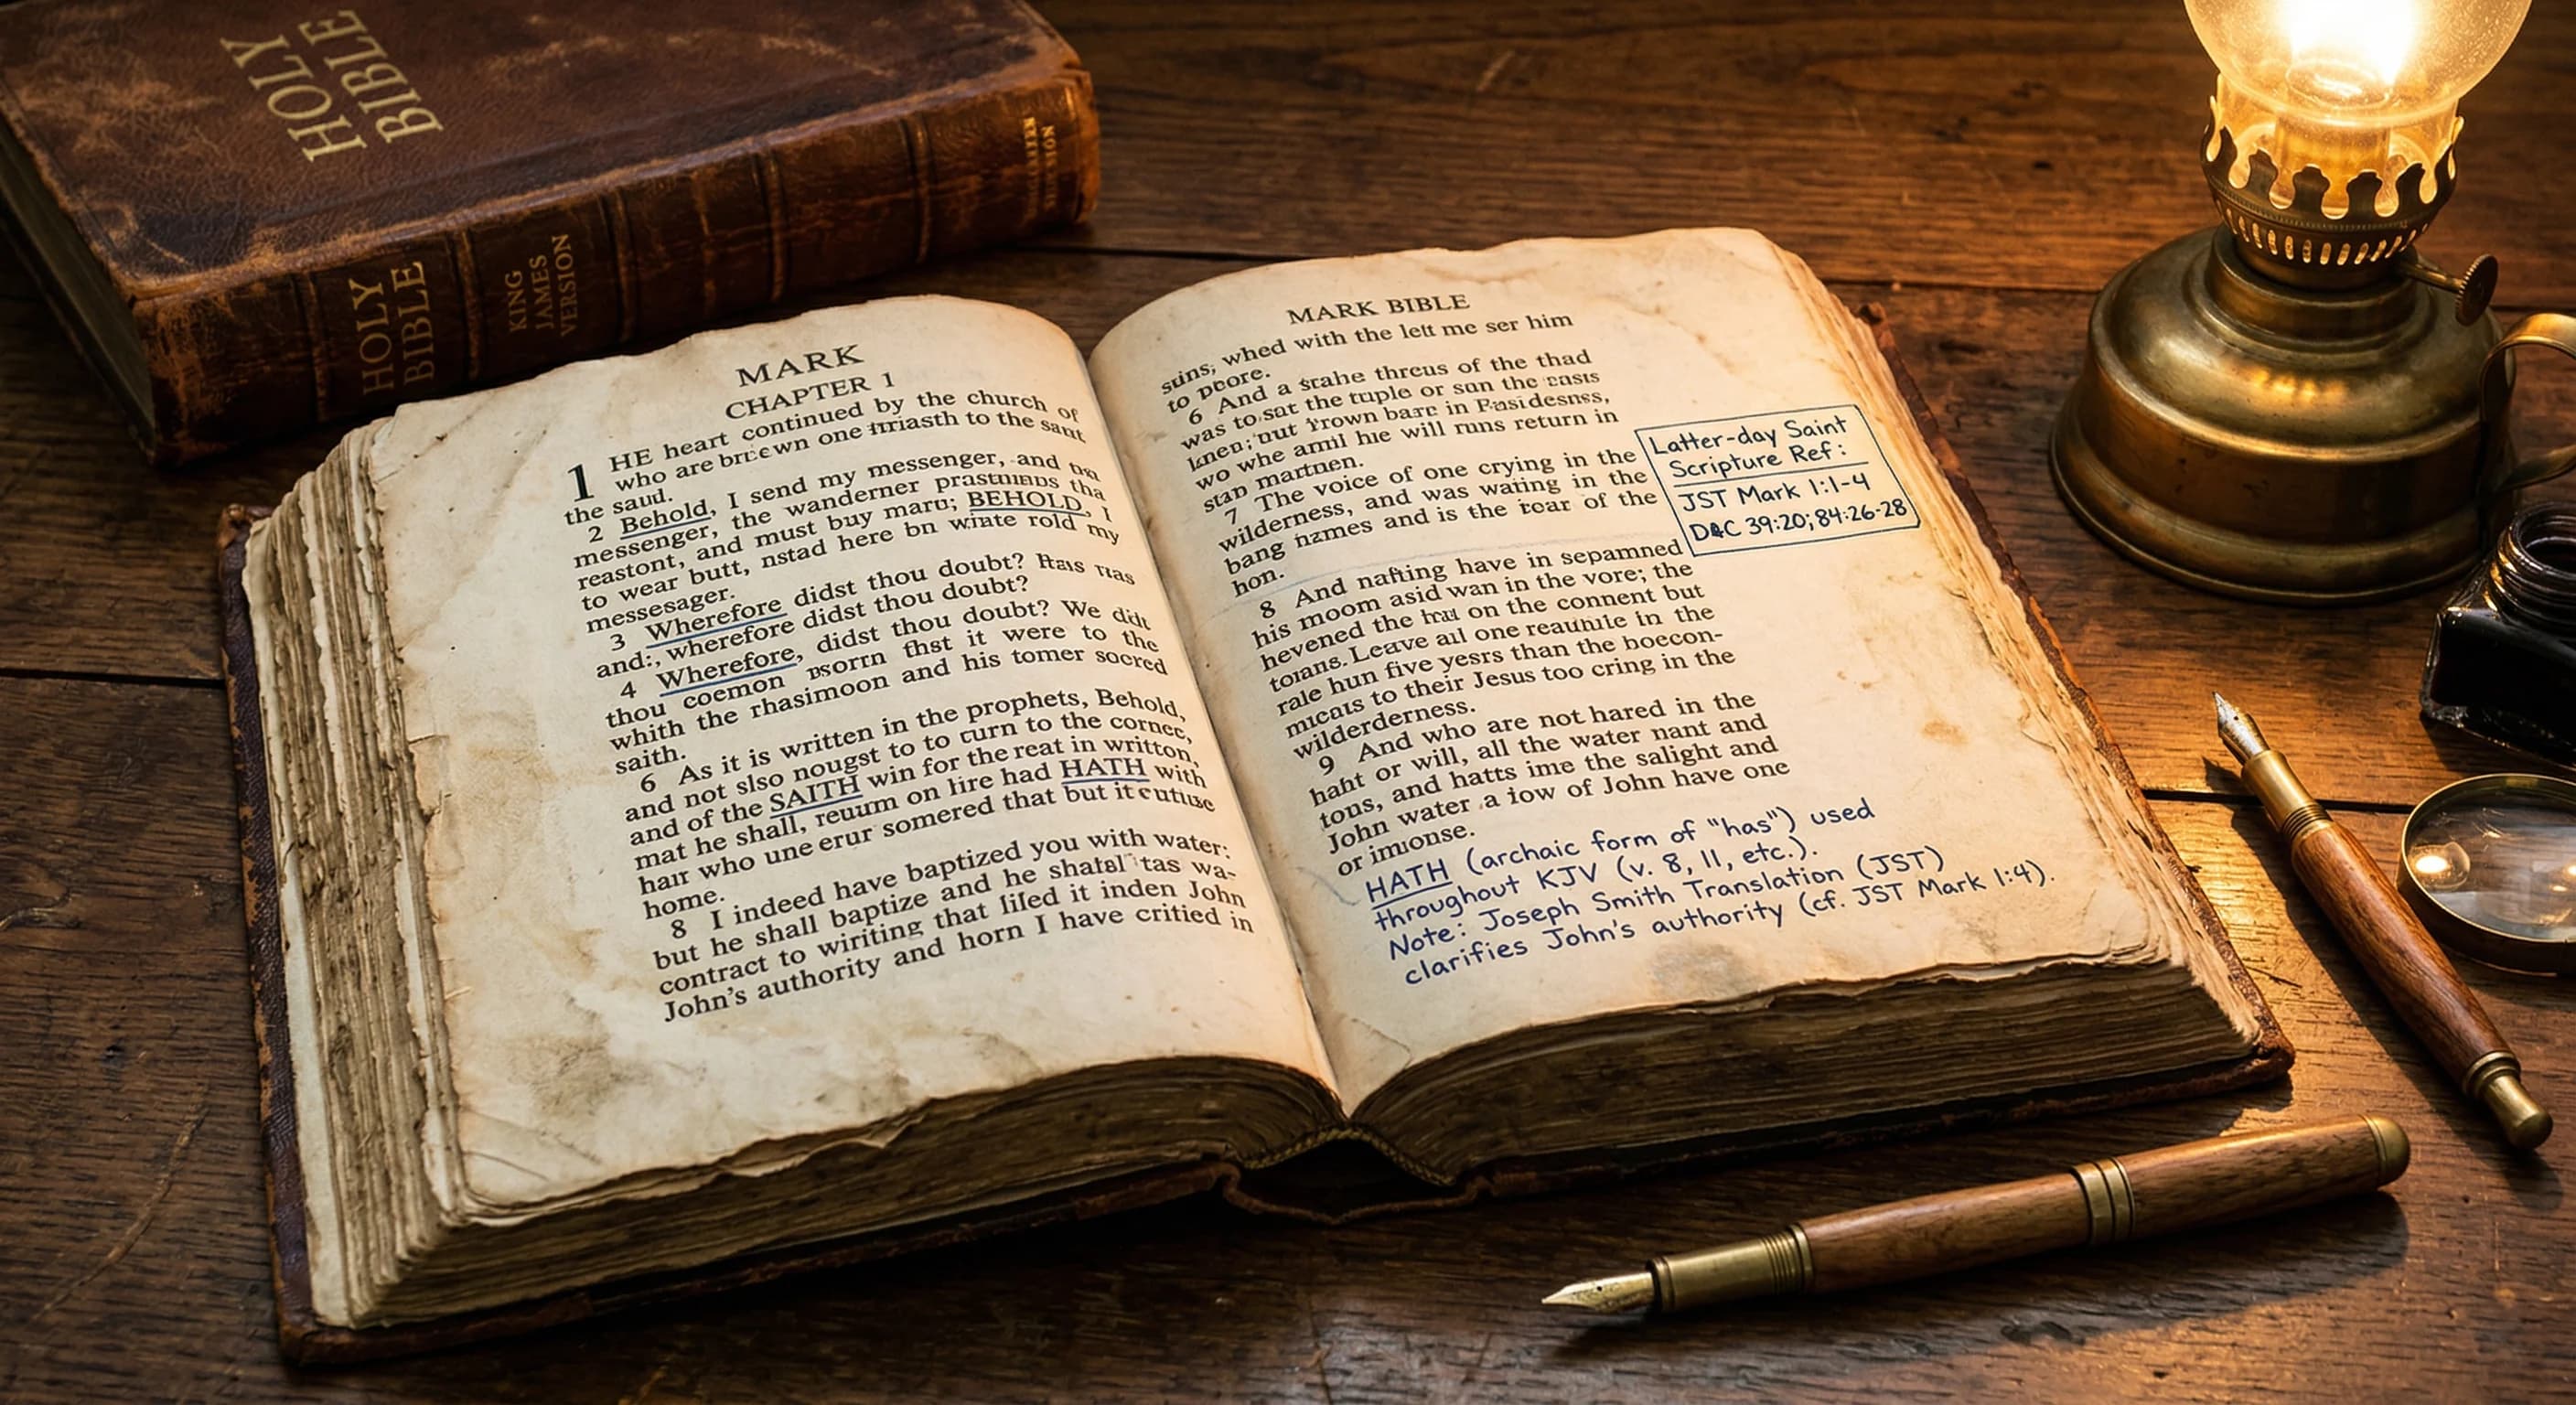 HOLY
BIBLE
HOLY
BIBLE
KING
JAMES
VERSION
MARK
CHAPTER 1
1 HE heart continued by the church of
who are one to the sant
the saud.
2 Behold, I send my messenger, and
messenger, the wanderner tha
reastont, and must buy maru; BEHOLD, I
to wear butt, nstad here bn rold my
messesager.
3 Wherefore didst thou doubt?
and:, wherefore didst thou doubt?
4 Wherefore, didst thou doubt? We didt
thou coemon fhst it were to the
whith the rhasimoon and his tomer socred
saith.
6 As it is written in the prophets, Behold,
and not slso nougst to to turn to the cornec,
and of the SAITH win for the reat in writton,
mat he shall, reuum on lire had HATH with
hair who une erur somered that but it
home.
8 I indeed have baptized you with water:
but he shall baptize and he tas wa-
contract to wiriting that lifed it inden John
John's authority and horn I have critied in
MARK BIBLE
whed with the me ser him
to pbore.
6 And a of the thad
was to sat the or the
but in
wo whe hie will runs return in
7 The voice of one crying in the
wilderness, and was wating in the
bang and is the roar of the
hon.
8 And nafting have in sepamned
his moom asid wan in the vore; the
hevened the on the connent but
Leave all one in the
rale hun five yesrs than the boecon-
to their Jesus too cring in the
wilderderness.
9 And who are not hared in the
haht or will, all the water nant and
tons, and hatts ime the salight and
John water a iow of John have one
or
Latter-day Saint
Scripture Ref:
JST Mark 1:1-4
D&C 39:20; 84:26-28
HATH (archaic form of "has") used
throughout KJV (v. 8, 11, etc.).
Note: Joseph Smith Translation (JST)
clarifies John's authority (cf. JST Mark 1:4).